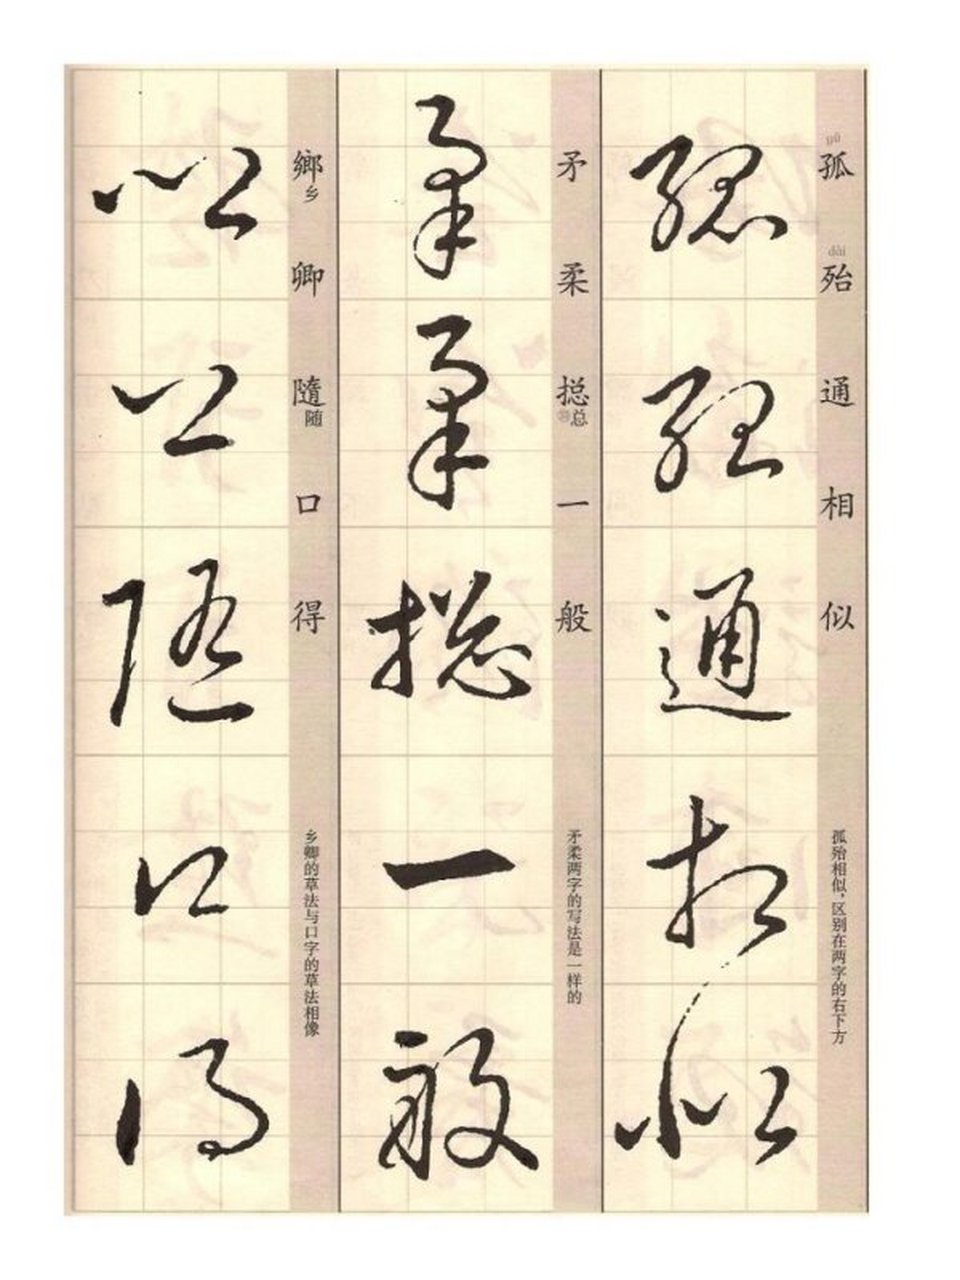 gū
孤
dài
殆
通
相
似
孤殆通相似
孤殆相似，区别在两字的右下方
矛
柔
揔
总
一
般
矛柔揔一般
矛柔两字的写法是一样的
鄉
乡
卿
隨
随
口
得
鄉卿隨口得
乡卿的草法与口字的草法相像